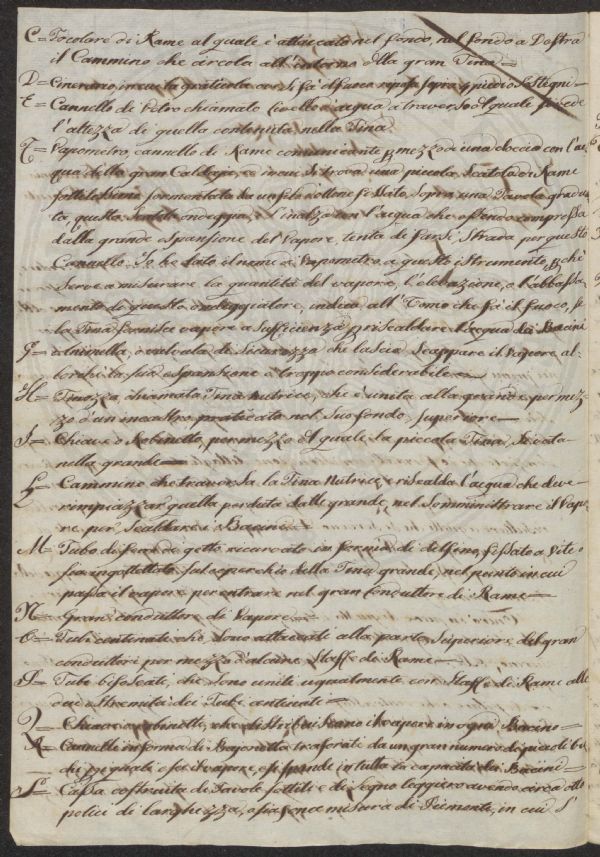 C= Focolare di Rame al quale è attaccato nel fondo, nel fondo a Destra
il Cammino che circola all'intorno della gran Tina
D= Cinerario, in cui la graticola ove si fà il fuoco riposa sopra 4 piedi o Sostegni
E= Cannello di Vetro chiamato livello d'acqua a traverso del quale si vede
l'altezza di quella contenuta nella Tina
F= Vapometro, cannello di Rame comunicante p. mezzo di una chiocciola con l'ac
qua della gran Caldaja, e in cui si trova una piccola Scatola di Rame
sottilissimo sormontata da un filo d'ottone fissato sopra una Tavola gradua
ta, questa Scatola ondeggia, e s'inalza con l'acqua che essendo compressa
dalla grande espansione del Vapore, tenta di farsi Strada per questo
Cannello. Io ho dato il nome di Vapometro a questo istrumento, p. chè
Serve a misurare la quantità del vapore, l'elevazione, o l'abbassa
mento di questo ondeggiatore, indica all'Uomo che fà il fuoco, se
la Tina fornisce vapore a Sufficienza p. riscaldare l'acqua dei Bacini
G= Animella, o valvula di Sicurezza che lascia Scappare il Vapore al-
lorchè la sua espansione è troppo considerabile
H= Tinozza chiamata Tina Nutrice, che è unita alla grande per mez
zo d'un incastro praticato nel Suo fondo Superiore
I= Chiave o Robinetto, per mezzo del quale la piccola Tina, Si vota
nella grande
L= Cammino che traversa la Tina Nutrice, e riscalda l'acqua che deve
rimpiazzar quella perduta dalla grande, nel Somministrare il Vapo-
re per Scaldare i Bacini
M= Tubo di ferro di getto ricurvato in forma di delfino, fissato a Vite o
sia ingottato sul coperchio della Tina grande, nel punto in cui
passa il vapore per entrare nel gran Conduttore di Rame
N= Gran conduttore di Vapore
O= Tubi centinate che Sono attaccati alla parte Superiore del gran
conduttore per mezzo d'alcune Staffe di Rame
P= Tubi biforcati, che Sono uniti ugualmente con Staffe di Rame alle
due estremità dei Tubi centinati
Q= Chiavi o robinetti, che distribuiscono il vapore in ogni Bacino
R= Cannelli in forma di Bajonetta traforati da un gran numero di piccoli bu
chi pe' quali esce il vapore, e si spande in tutta la capacità dei Bacini
S= Cassa costruita di Tavole sottili e di Legno leggiero avendo circa otto
pollici di larghezza, o sia fona misura di Piemonte, in cui S'